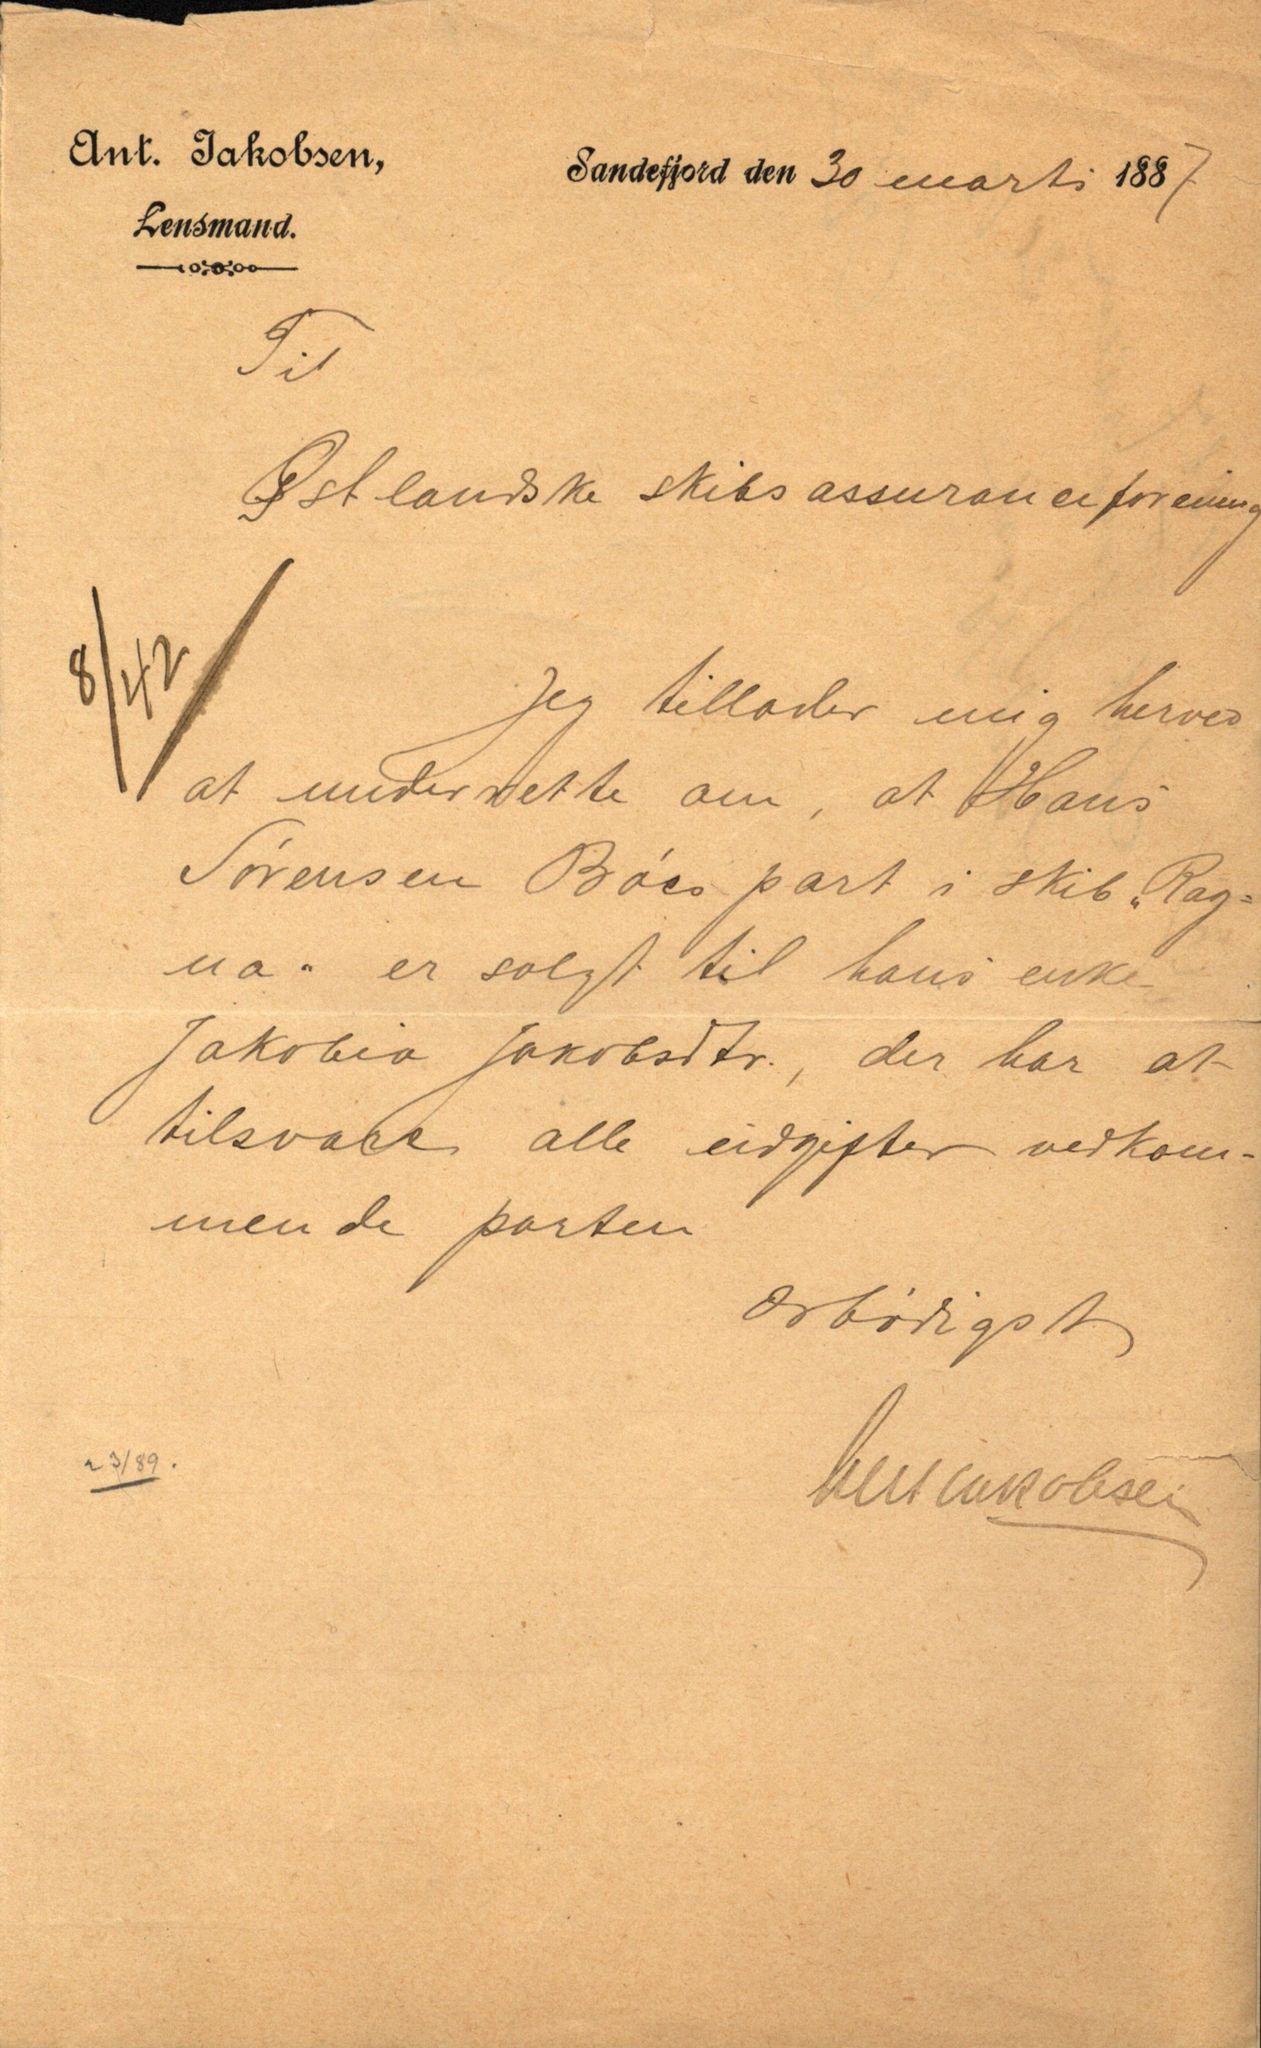 Ant. Jakobsen,
Lensmand.
Sandefjord den 30 marts 1887
Til
Østlandske skibsassuranceforening
8/42
Jeg tillader mig herved
at underrette om, at Hans
Sørensen Bøes part i skib „Rag=
na“ er solgt til hans enke
Jakobia Jakobsdtr., der har at
tilsvare alle udgifter vedkom-
mende parten
Ærbødigst
Ant Jakobsen
23/89.